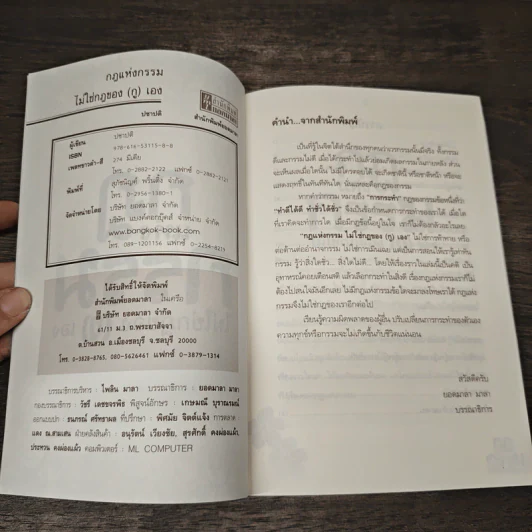 กฎแห่งกรรม
ไม่ใช่กฎของ (กู) เอง
ปชาปติ
สำนักพิมพ์ยอดมาลา
ผู้เขียน ปชาปติ
ISBN 978-616-53115-8-8
เพลทขาวดำ-สี 274 มีเดีย
โทร. 0-2882-2122 แฟกซ์ 0-2882-2121
พิมพ์ที่ สุภัชนิญค์ พริ้นติ้ง จำกัด
โทร. 0-2956-1380-1
จัดจำหน่ายโดย บริษัท ยอดมาลา จำกัด
บริษัท แบงค์คอกบุ๊คส์ จำหน่าย จำกัด
www.bangkok-book.com
โทร. 089-1201156 แฟกซ์ 0-2254-8215
ได้รับสิทธิ์ให้จัดพิมพ์
สำนักพิมพ์ยอดมาลา ในเครือ
บริษัท ยอดมาลา จำกัด
61/11 ม.3 ถ.พระยาสัจจา
ต.บ้านสวน อ.เมืองชลบุรี จ.ชลบุรี 20000
โทร. 0-3828-8765, 080-5626461 แฟกซ์ 0-3879-1314
บรรณาธิการบริหาร : ไพลิน มาลา บรรณาธิการ : ยอดมาลา มาลา
กองบรรณาธิการ : วัชรี เดชขจรพิช พิสูจน์อักษร : เกษมณี บุราณรมย์
ออกแบบปก : ธนภรณ์ ศรีทธาผล ที่ปรึกษา : พิศมัย จิตต์แจ้ง การตลาด
แดง ณ.สามเสน ฝ่ายคลังสินค้า : ธนูรัตน์ เวียงชัย, สุรศักดิ์ คงผ่องแผ้ว,
ประหวน คงผ่องแผ้ว คอมพิวเตอร์ : ML COMPUTER
คำนำ...จากสำนักพิมพ์
เป็นที่รู้ในจิตใต้สำนึกของทุกคนว่าเวรกรรมนั้นมีจริง ทั้งกรรม
ดีและกรรมไม่ดี เมื่อได้กระทำไปแล้วย่อมเกิดผลกรรมในภายหลัง ส่วน
จะเห็นผลเมื่อใดนั้น ไม่มีใครตอบได้ จะเกิดชาตินี้ หรือชาติหน้า หรือจะ
แสดงฤทธิ์ในทันทีทันใด นั่นแหละคือกฎของกรรม
หากคำว่ากรรม หมายถึง "การกระทำ" กฎของกรรมข้อหนึ่งที่ว่า
"ทำดีได้ดี ทำชั่วได้ชั่ว" จึงเป็นข้อกำหนดการกระทำของเราได้ เมื่อใด
ที่เราคิดจะทำการใด เมื่อมีกฎข้อนี้อยู่ในใจ เราก็ไม่ต้องกลัวอะไรเลย
"กฎแห่งกรรม ไม่ใช่กฎของ (กู) เอง" ไม่ใช่การท้าทาย หรือ
ต่อต้านต่ออำนาจกรรม ไม่ใช่การเมินเฉย แต่เป็นการสอนให้เรารู้เท่าทัน
กรรม รู้ว่าสิ่งใดชั่ว... สิ่งใดไม่ดี... โดยให้เรื่องราวในเล่มนี้เป็นคติ เป็น
อุทาหรณ์คอยเตือนสติ แล้วเลือกกระทำในสิ่งดี เรื่องกฎแห่งกรรมเราก็ไม่
ต้องไปสนใจมันอีกเลย ไม่มีกฎแห่งกรรมข้อใดจะมาลงโทษเราได้ กฎแห่ง
กรรมจึงไม่ใช่กฎของเราอีกต่อไป
เรียนรู้ความผิดพลาดของผู้อื่น ปรับเปลี่ยนการกระทำของตัวเอง
ความทุกข์หรือกรรมจะไม่เกิดขึ้นกับชีวิตแน่นอน
สวัสดีครับ
ยอดมาลา มาลา
บรรณาธิการ